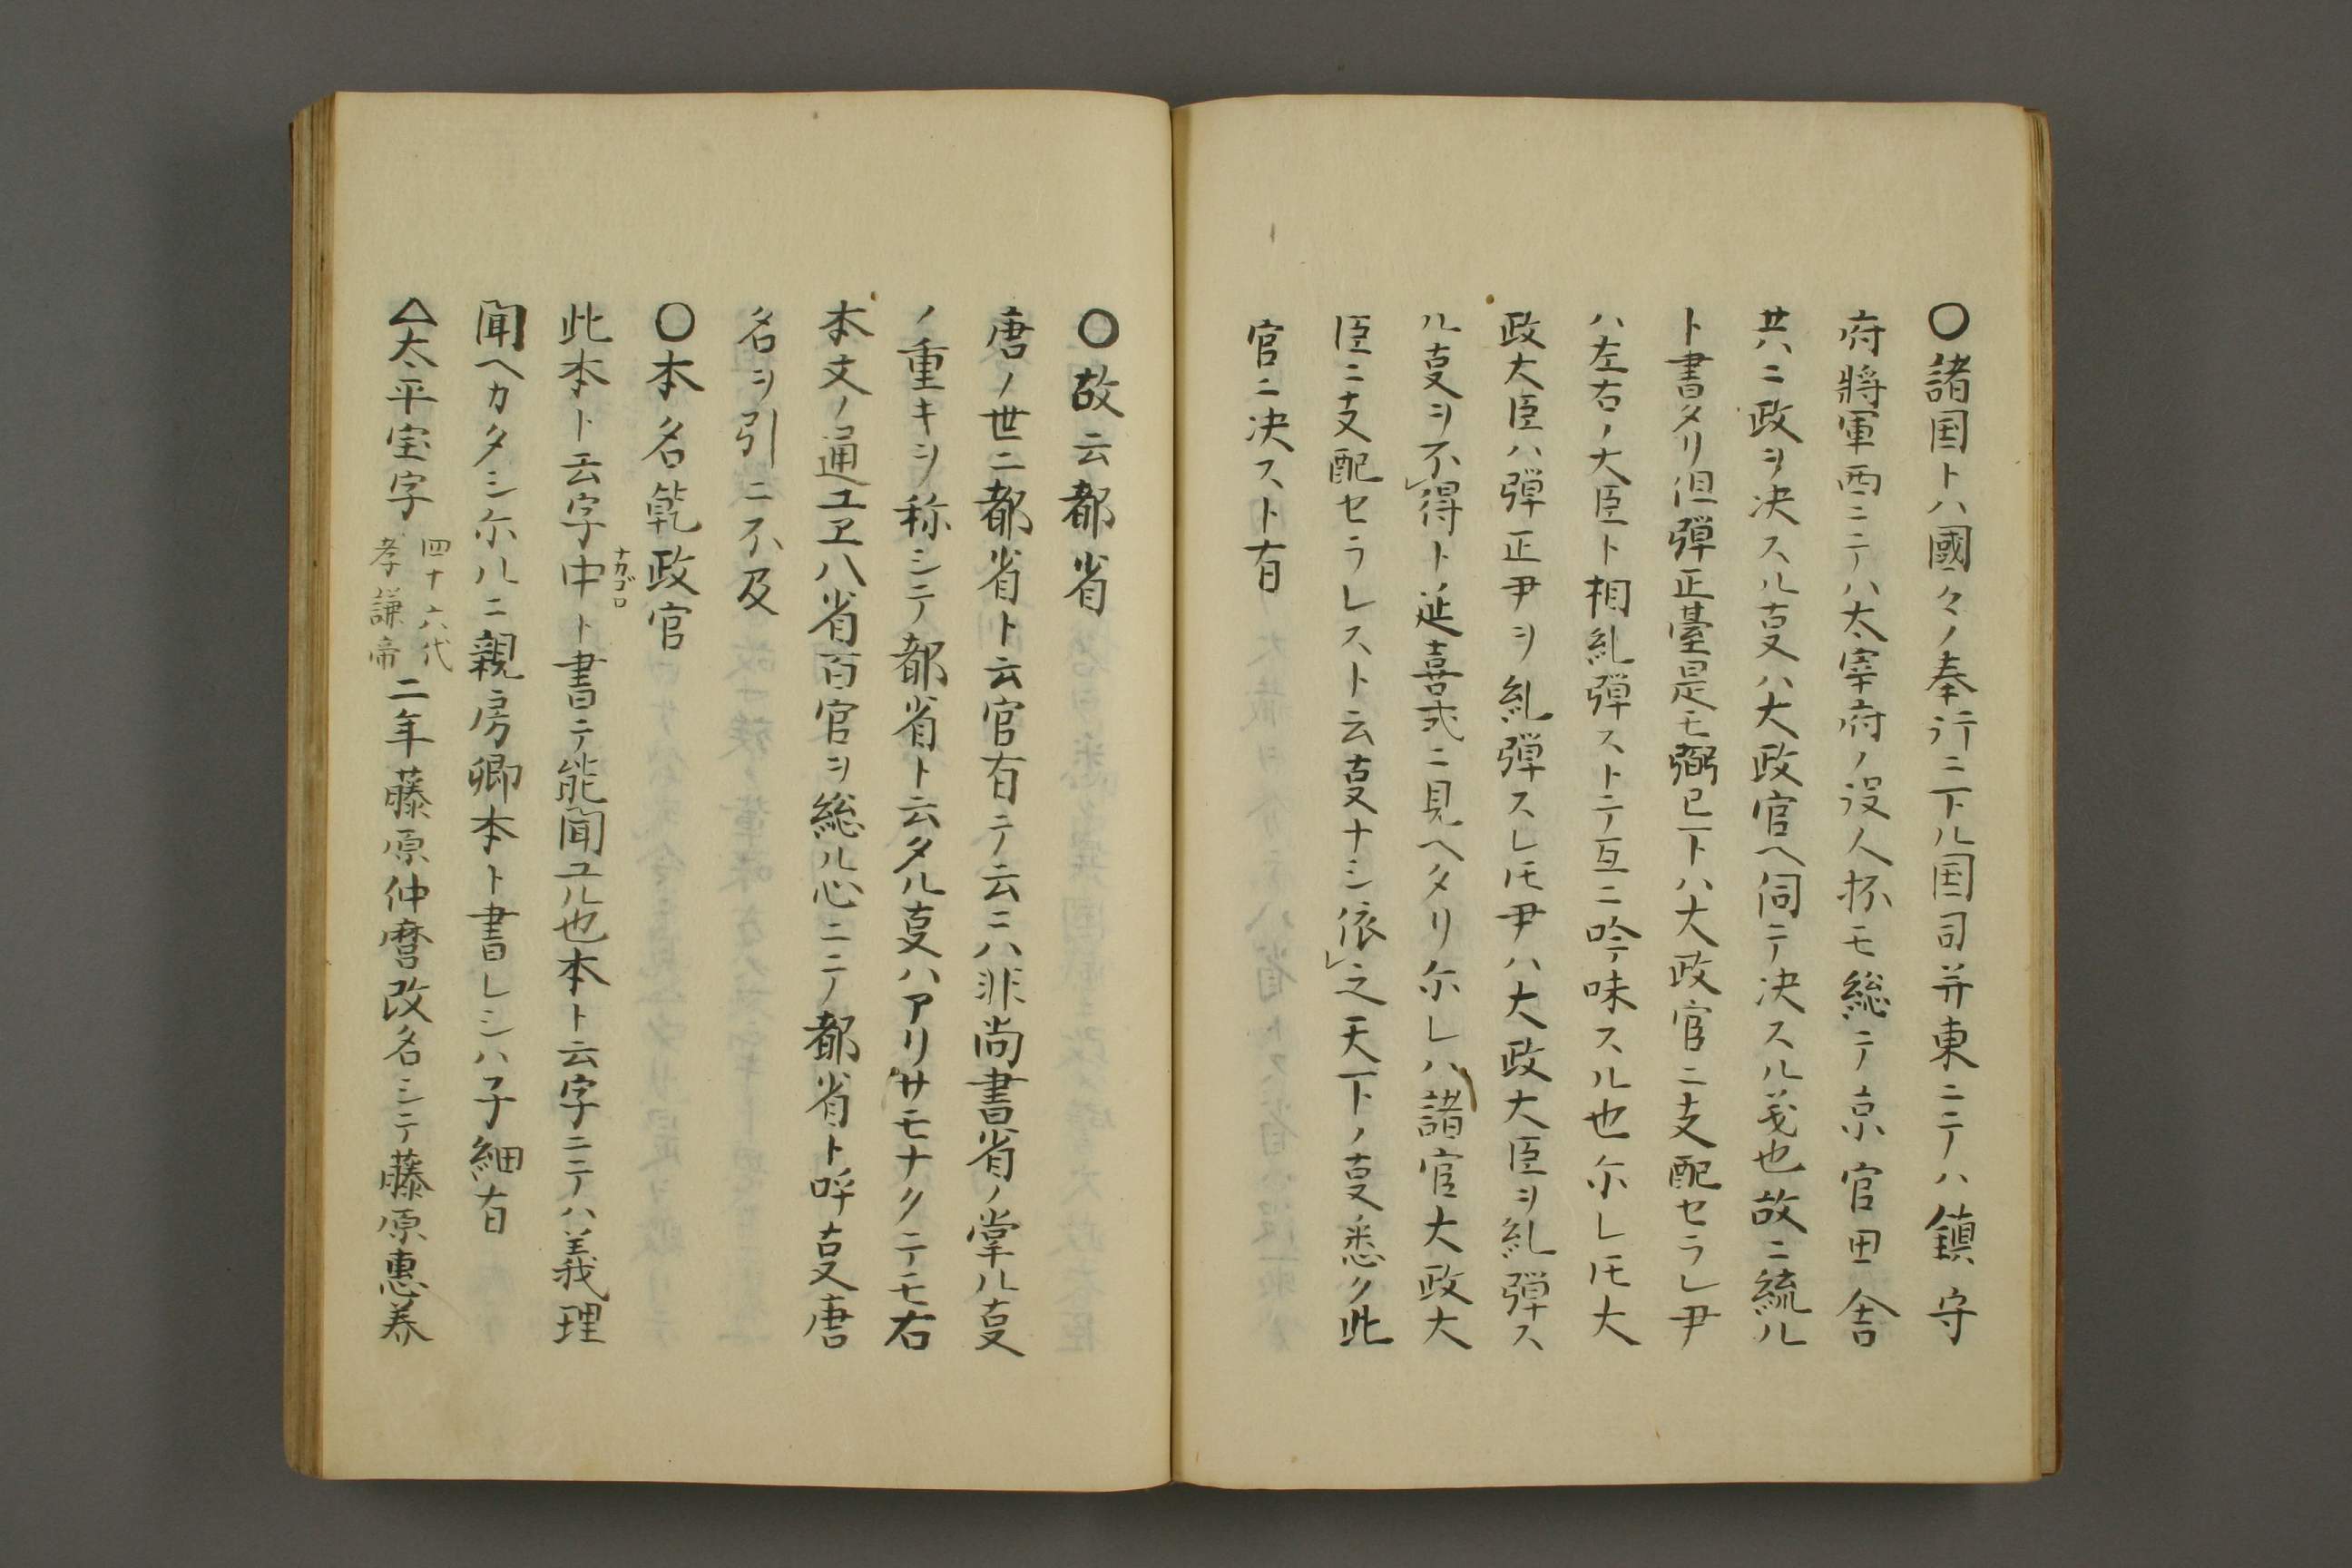 〇諸国トハ國々ノ奉行ニ下ル国司并東ニテハ鎮守
府將軍西ニテハ太宰府ノ役人抔モ総テ京官田舎
共ニ政ヲ决スル叓ハ大政官ヘ伺テ决スル義也故ニ統ル
ト書タリ但彈正臺是モ弼已下ハ大政官ニ支配セラレ尹
ハ左右ノ大臣ト相糺彈ストテ互ニ吟味スル也尓レ𪜈大
政大臣ハ彈正尹ヲ糺彈スレ𪜈尹ハ大政大臣ヲ糺彈ス
ル叓ヲ不レ得ト延喜式ニ見ヘタリ尓レハ諸官大政大
臣ニ支配セラレスト云叓ナシ依レ之天下ノ叓悉ク此
官ニ决スト有
〇故云都省
唐ノ世ニ都省ト云官有テ云ニハ非尚書省ノ掌ル叓
ノ重キヲ称シテ都省ト云タル叓ハアリサモナクテモ右
本文ノ通ユヱ八省百官ヲ総ル心ニテ都省ト呼叓唐
名ヲ引ニ不及
〇本名乾政官
此本ト云字中ナカゴロト書テ能聞ユル也本ト云字ニテハ義理
聞ヘカタシ尓ルニ親房卿本ト書レシハ子細有
△太平宝字四十六代孝謙帝二年藤原仲麿改名シテ藤原惠美